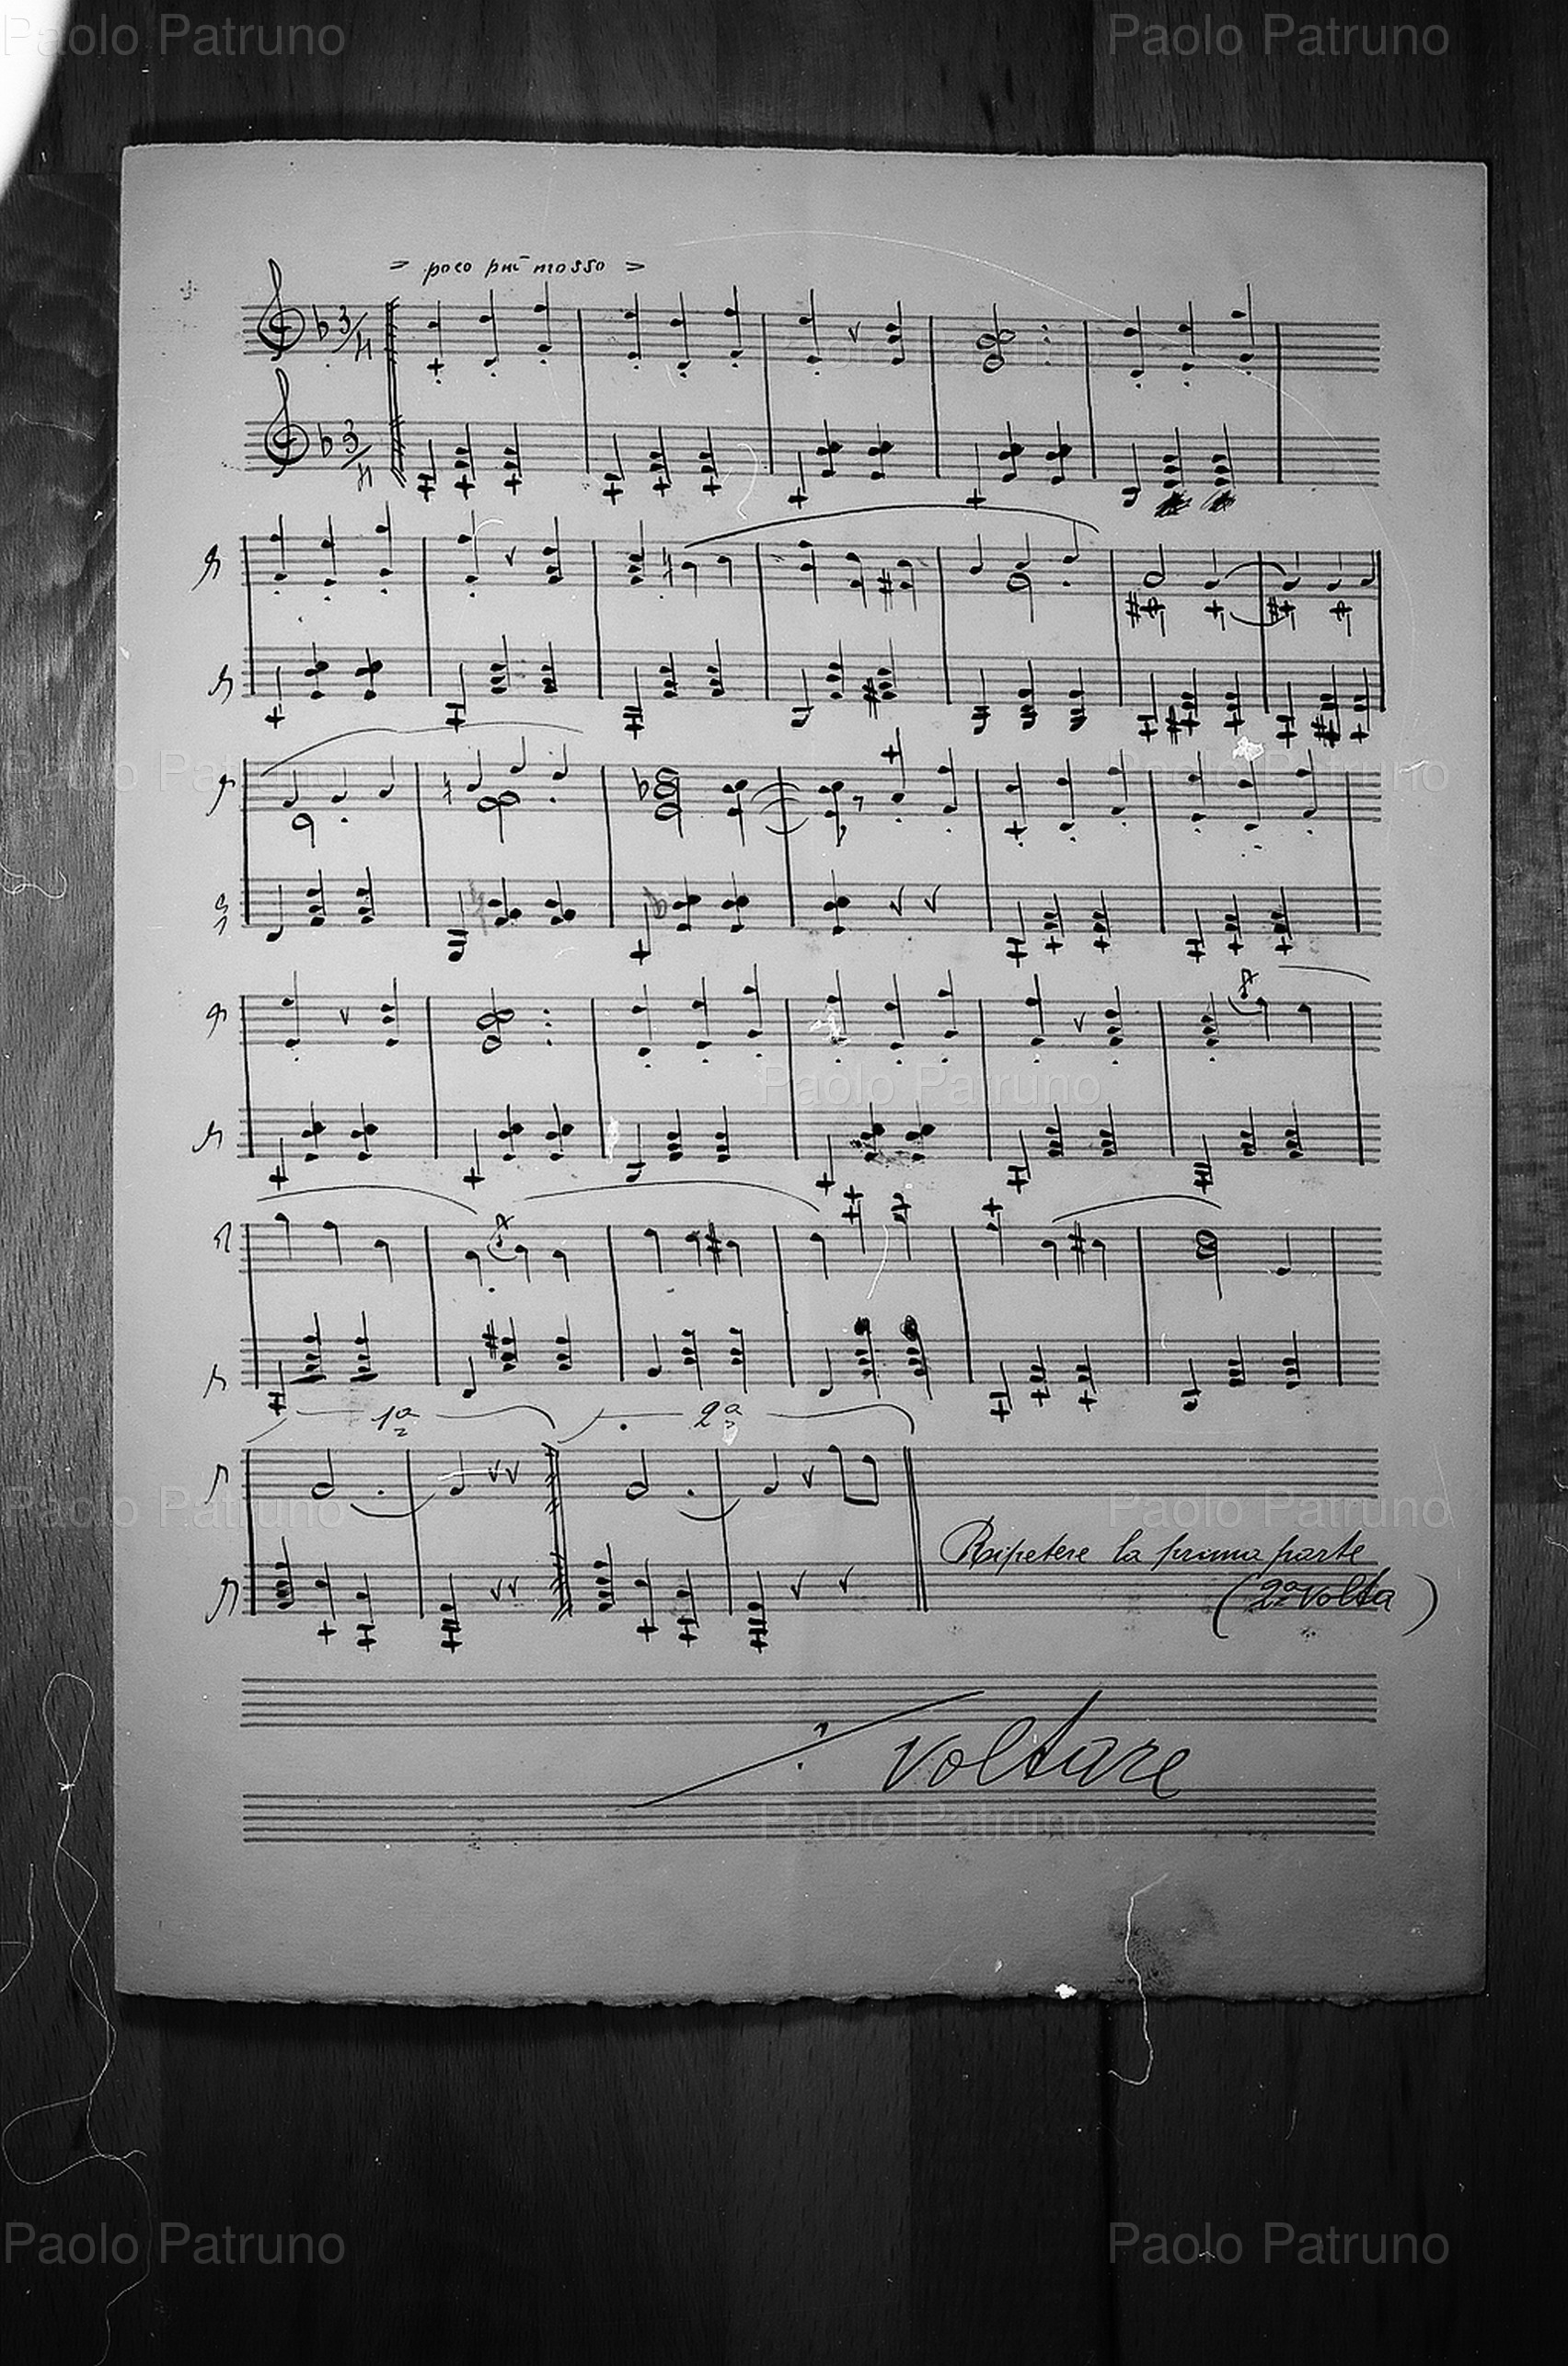 Paolo Patruno Paolo Patruno
> poco più mosso >
3/4
Paolo Patruno
3/4
Paolo Patruno Paolo Patruno
Paolo Patruno
1ª 2ª
Paolo Patruno Paolo Patruno
Ripetere la prima parte
(2ª volta)
voltare
Paolo Patruno
Paolo Patruno Paolo Patruno